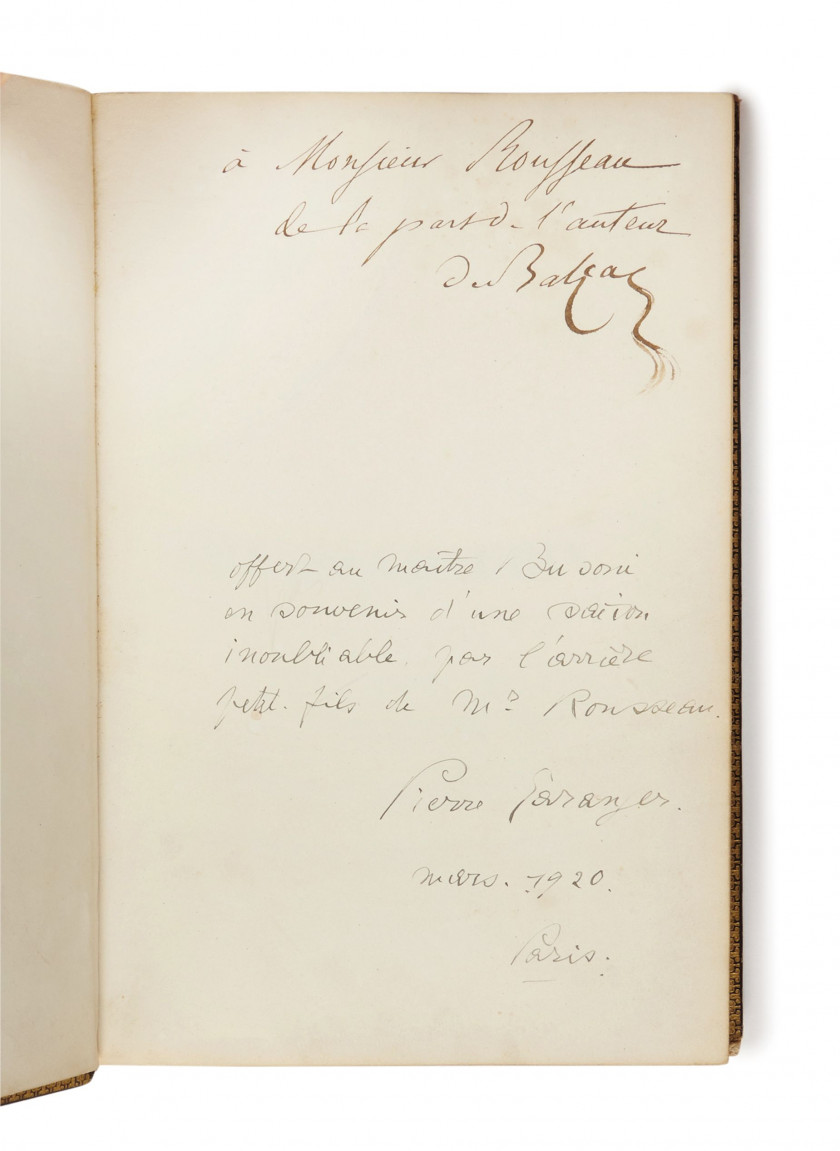 à Monsieur Rousseau
de la part de l'auteur
De Balzac
offert au maître Busoni
en souvenir d'une saison
inoubliable, par l'arrière
petit-fils de Mr Rousseau.
Pierre
mars. 1920.
Paris.